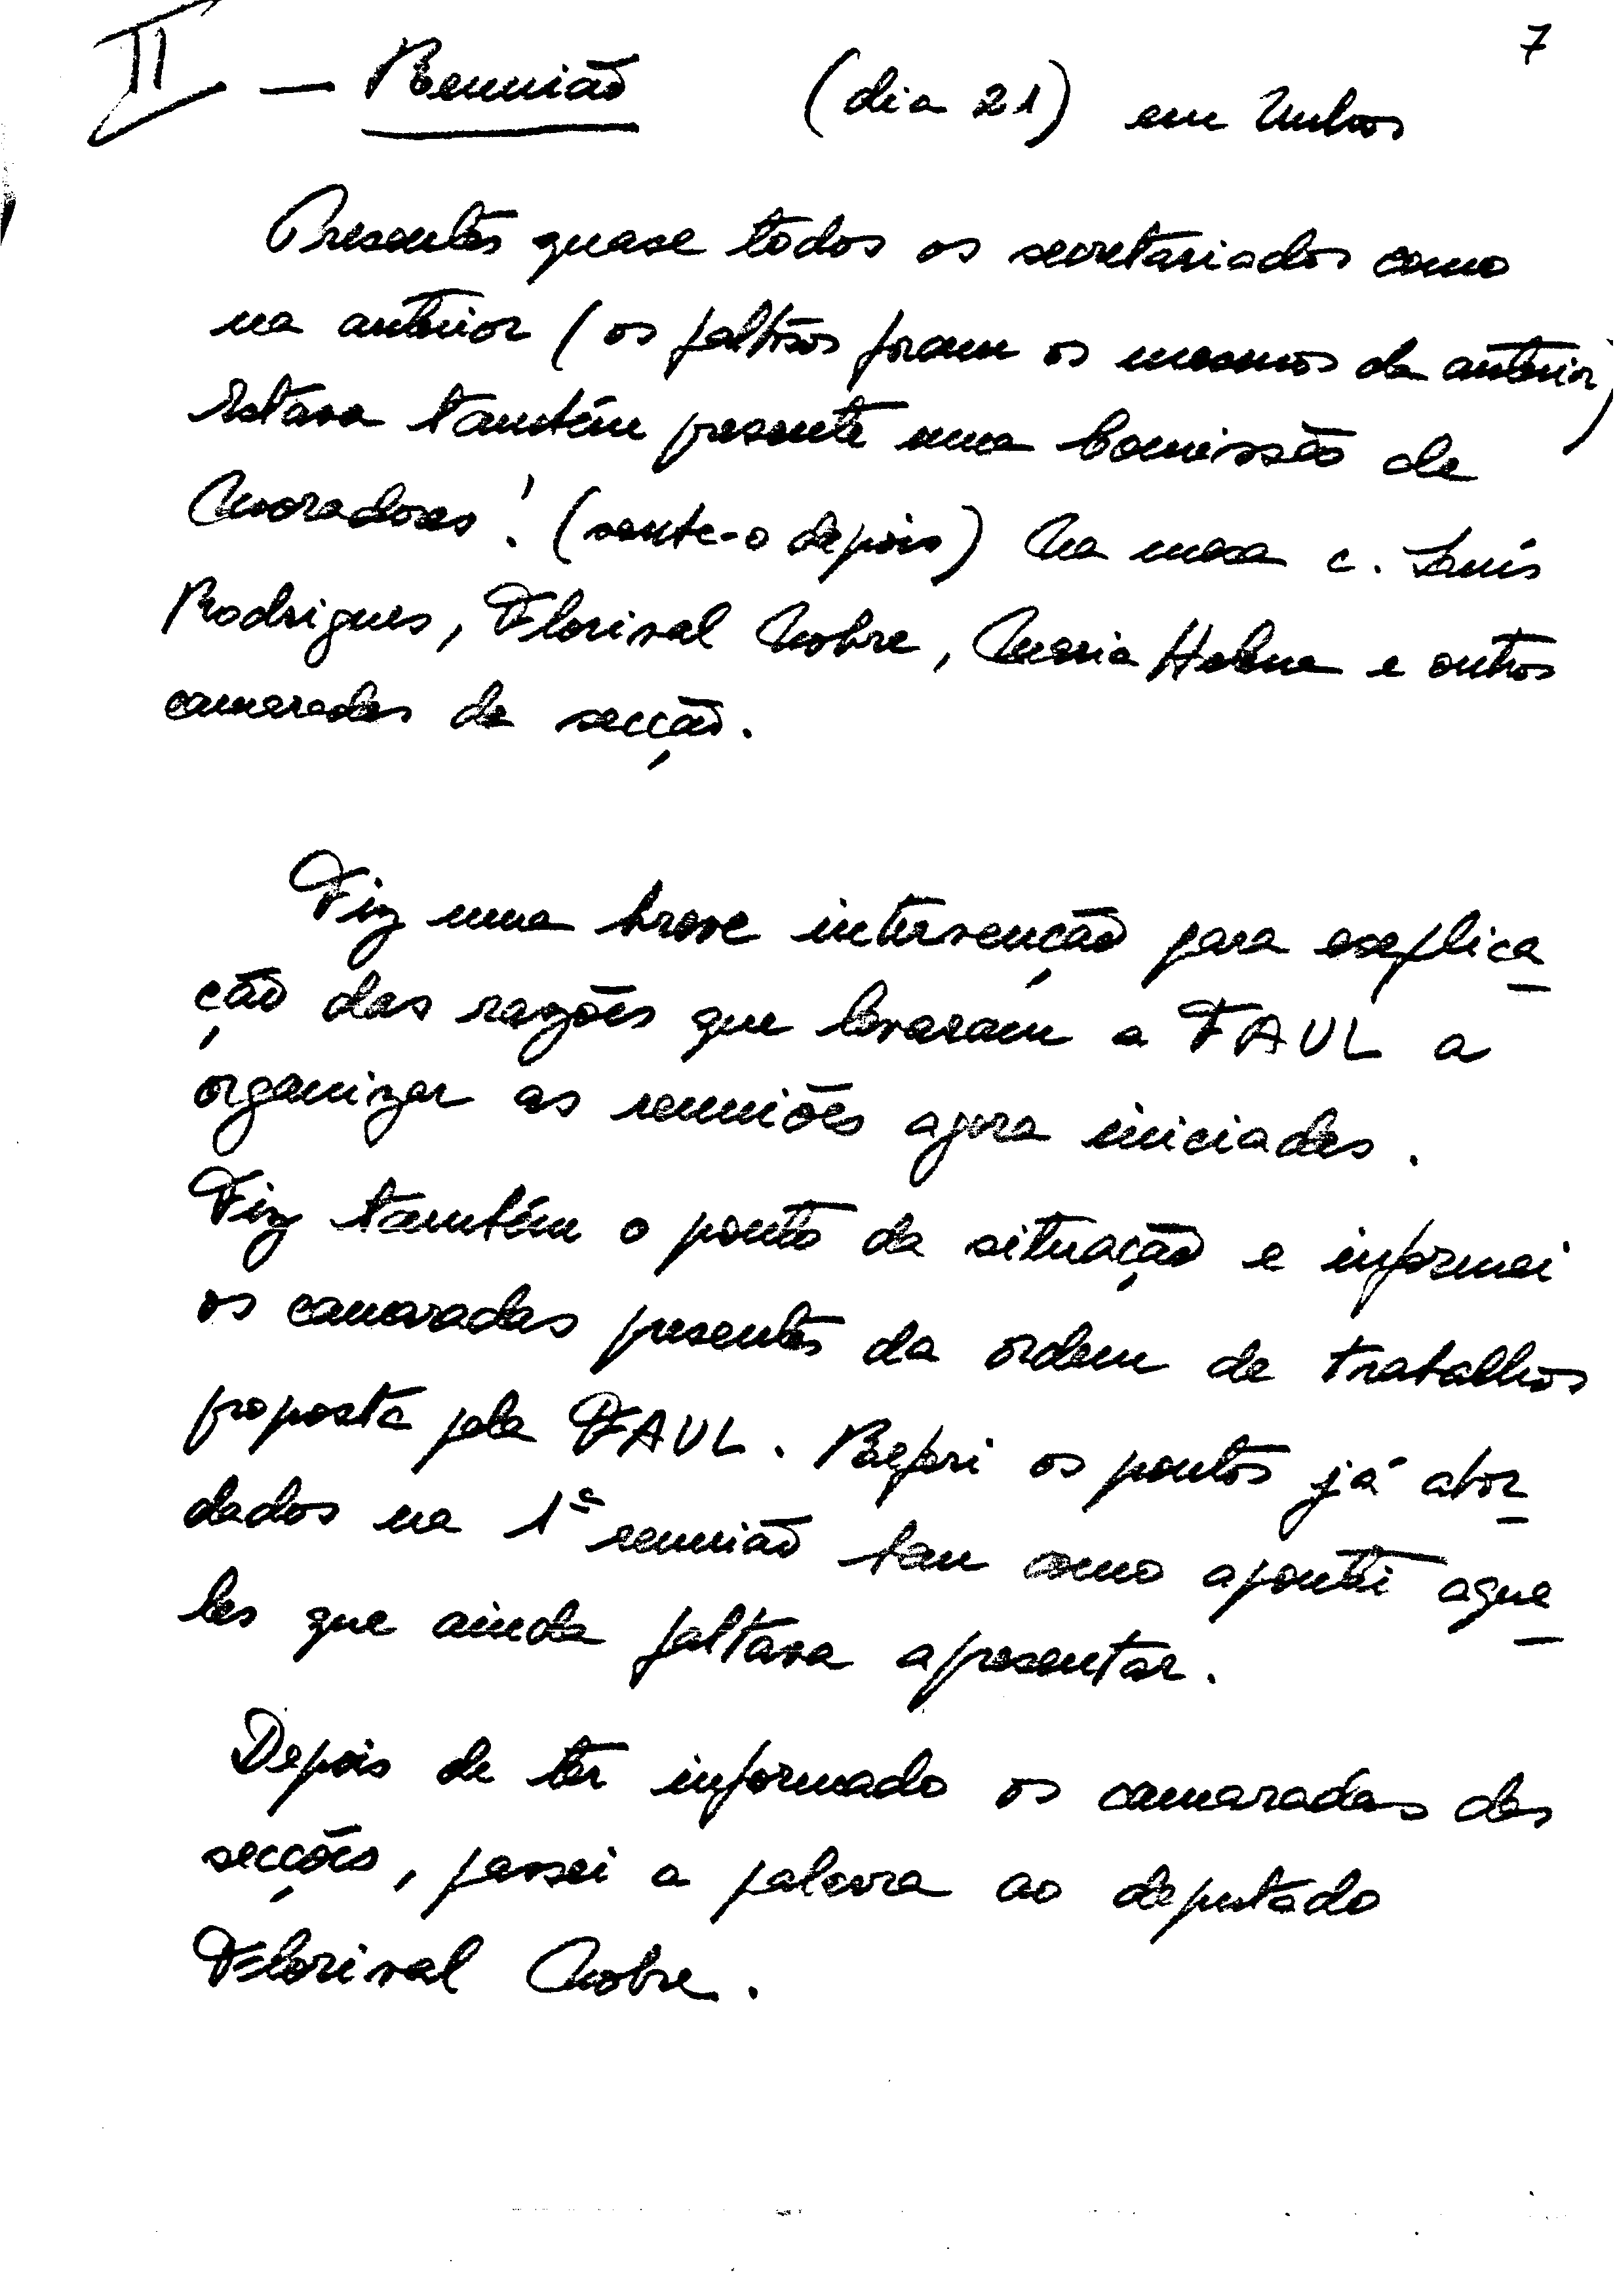 7
II — Reunião (dia 21) em Unhos
Presentes quase todos os secretariados como
na anterior (os faltosos foram os mesmos da anterior)
Estava também presente uma Comissão de
Moradores! (soube-o depois) Na mesa c. Luís
Rodrigues, Florival Nobre, Maria Helena e outros
camaradas da secção.
Fiz uma breve intervenção para explica
ção das razões que levaram a FAUL a
organizar as reuniões agora iniciadas.
Fiz também o ponto da situação e informei
os camaradas presentes da ordem de trabalhos
proposta pela FAUL. Referi os pontos já abor
dados na 1ª reunião bem como apontei aque
les que ainda faltava apresentar.
Depois de ter informado os camaradas das
secções, passei a palavra ao deputado
Florival Nobre.